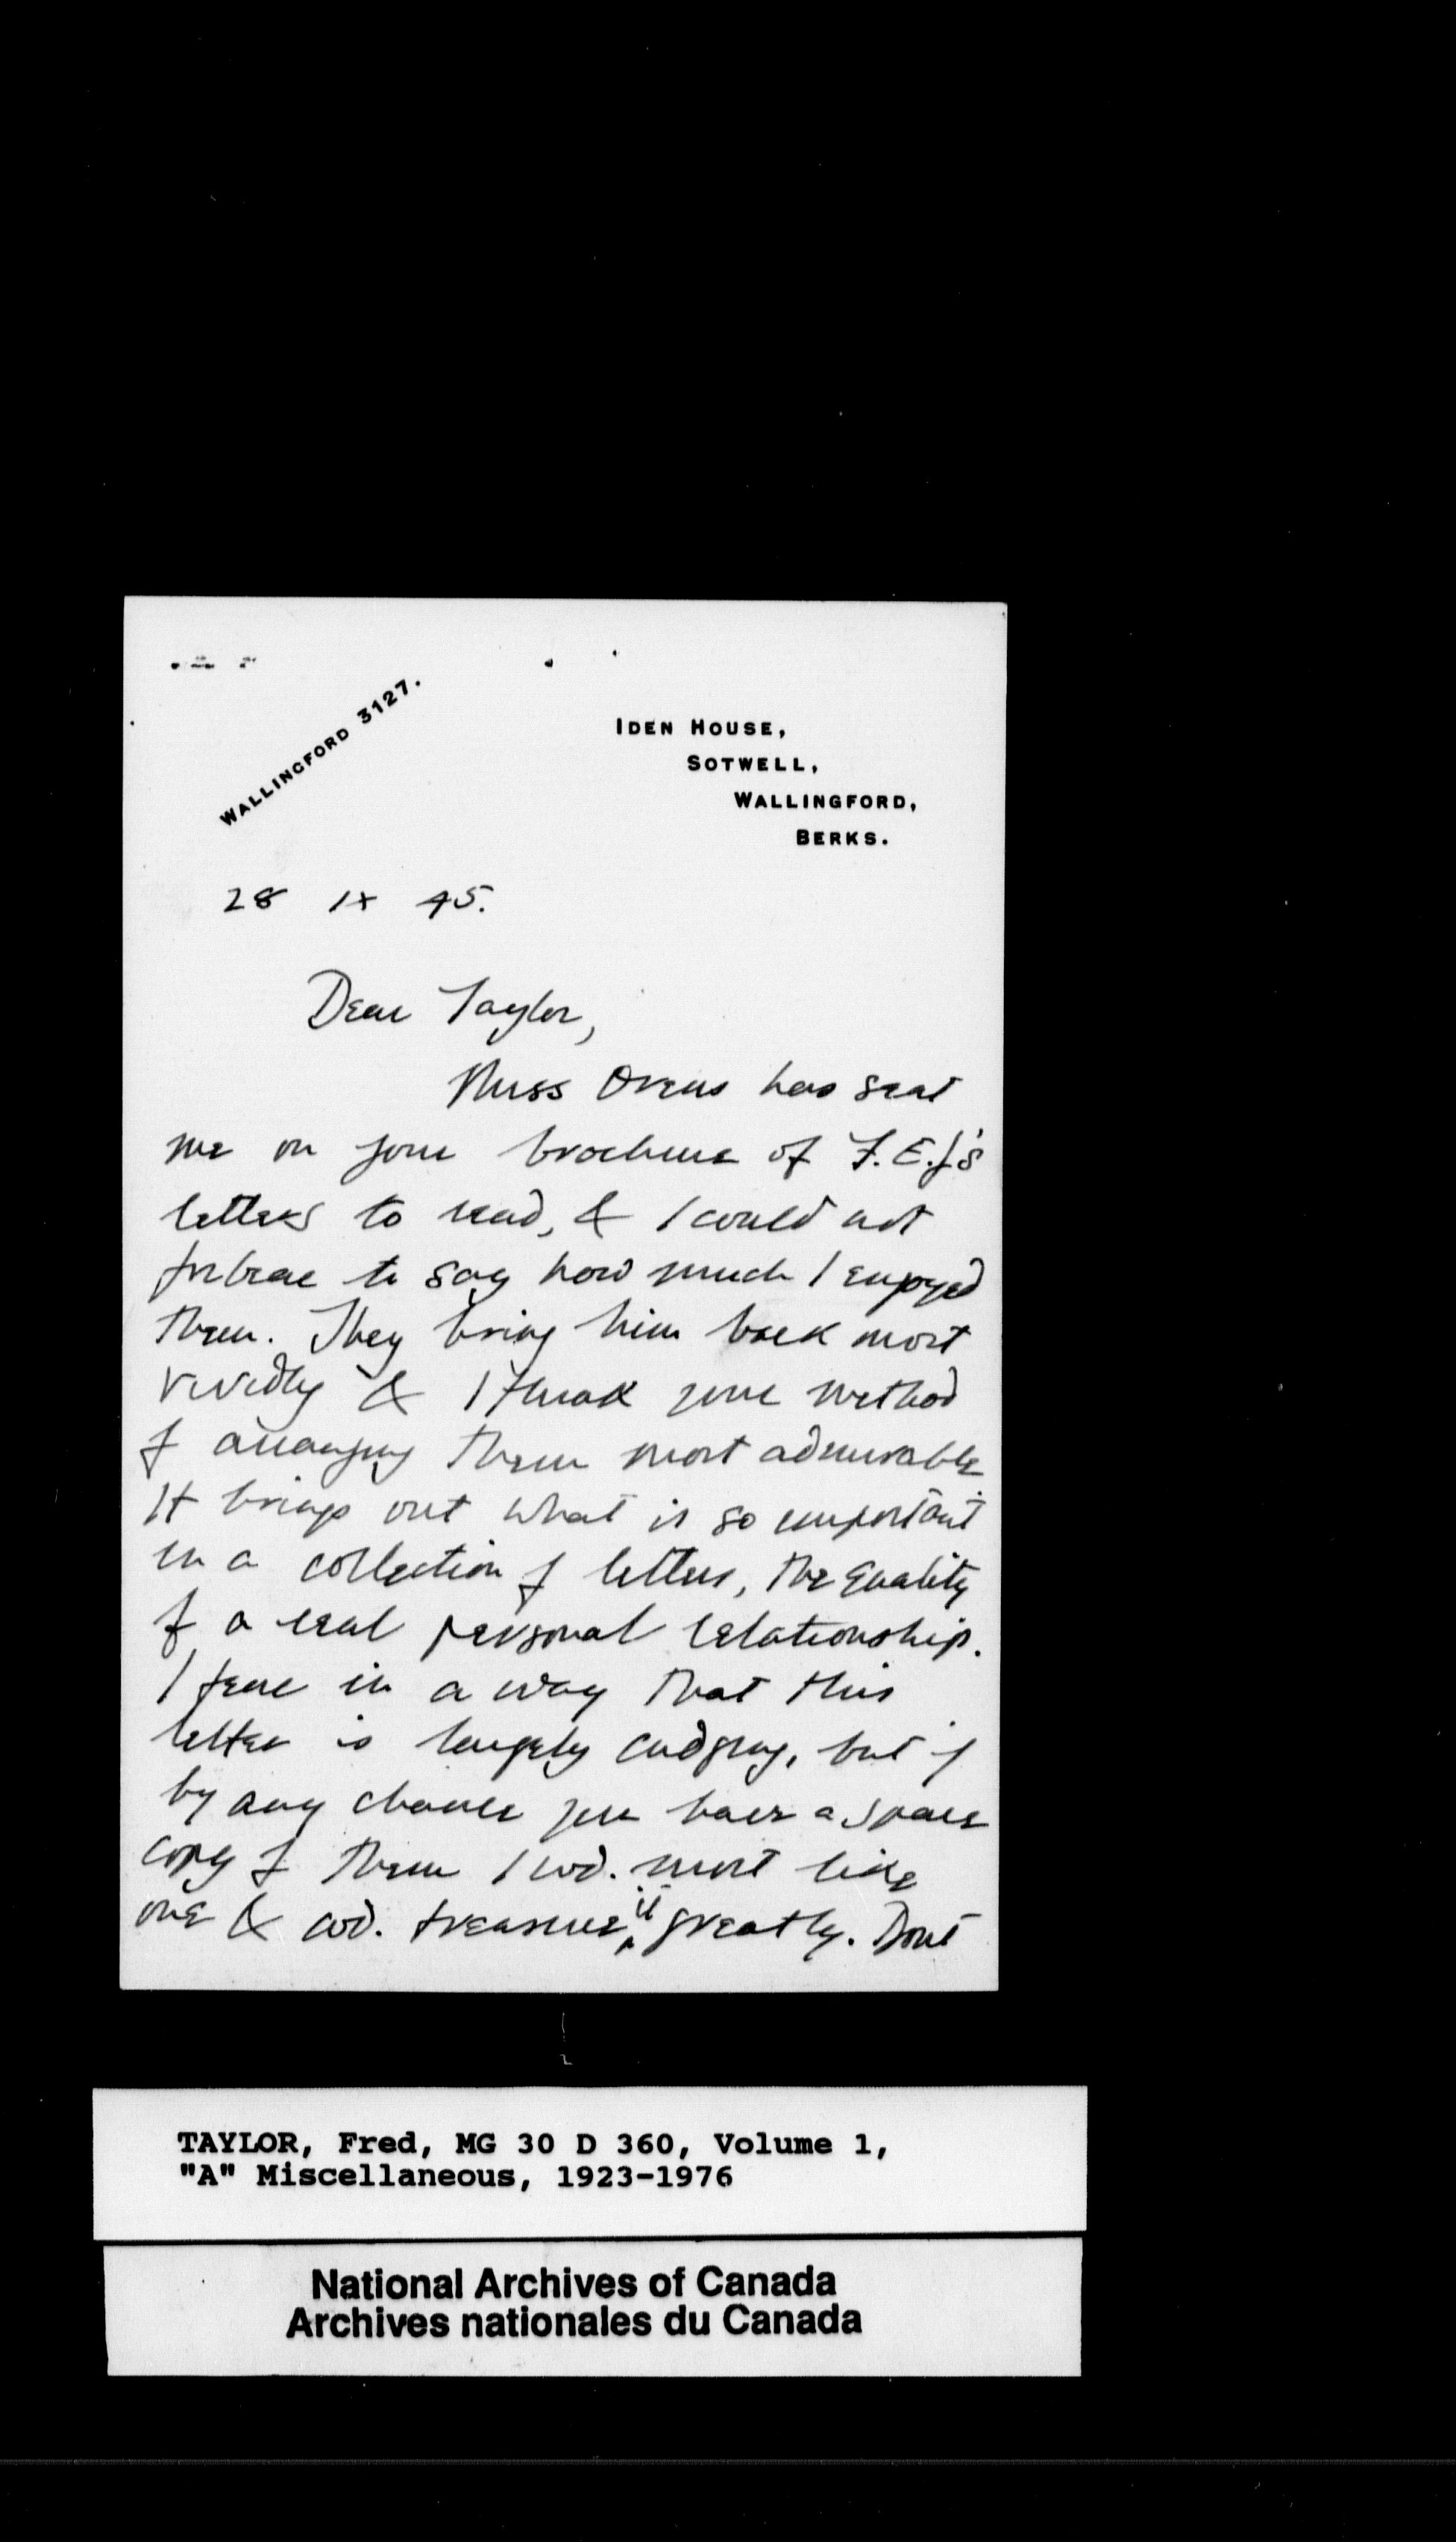 WALLINGFORD 3127.
IDEN HOUSE,
SOTWELL,
WALLINGFORD,
BERKS.
28 IX 45.
Dear Taylor,
Miss Ovens has sent
me on your brochure of F.E.J's
letters to read, & I could not
forbear to say how much I enjoyed
them. They bring him back most
vividly & I think your method
of arranging them most admirable
It brings out what is so important
in a collection of letters, the quality
of a real personal relationship.
I fear in a way that this
letter is largely cadging, but if
by any chance you have a spare
copy of them I wd. most like
one & wd. treasure it greatly. Dont
TAYLOR, Fred, MG 30 D 360, Volume 1,
"A" Miscellaneous, 1923-1976
National Archives of Canada
Archives nationales du Canada